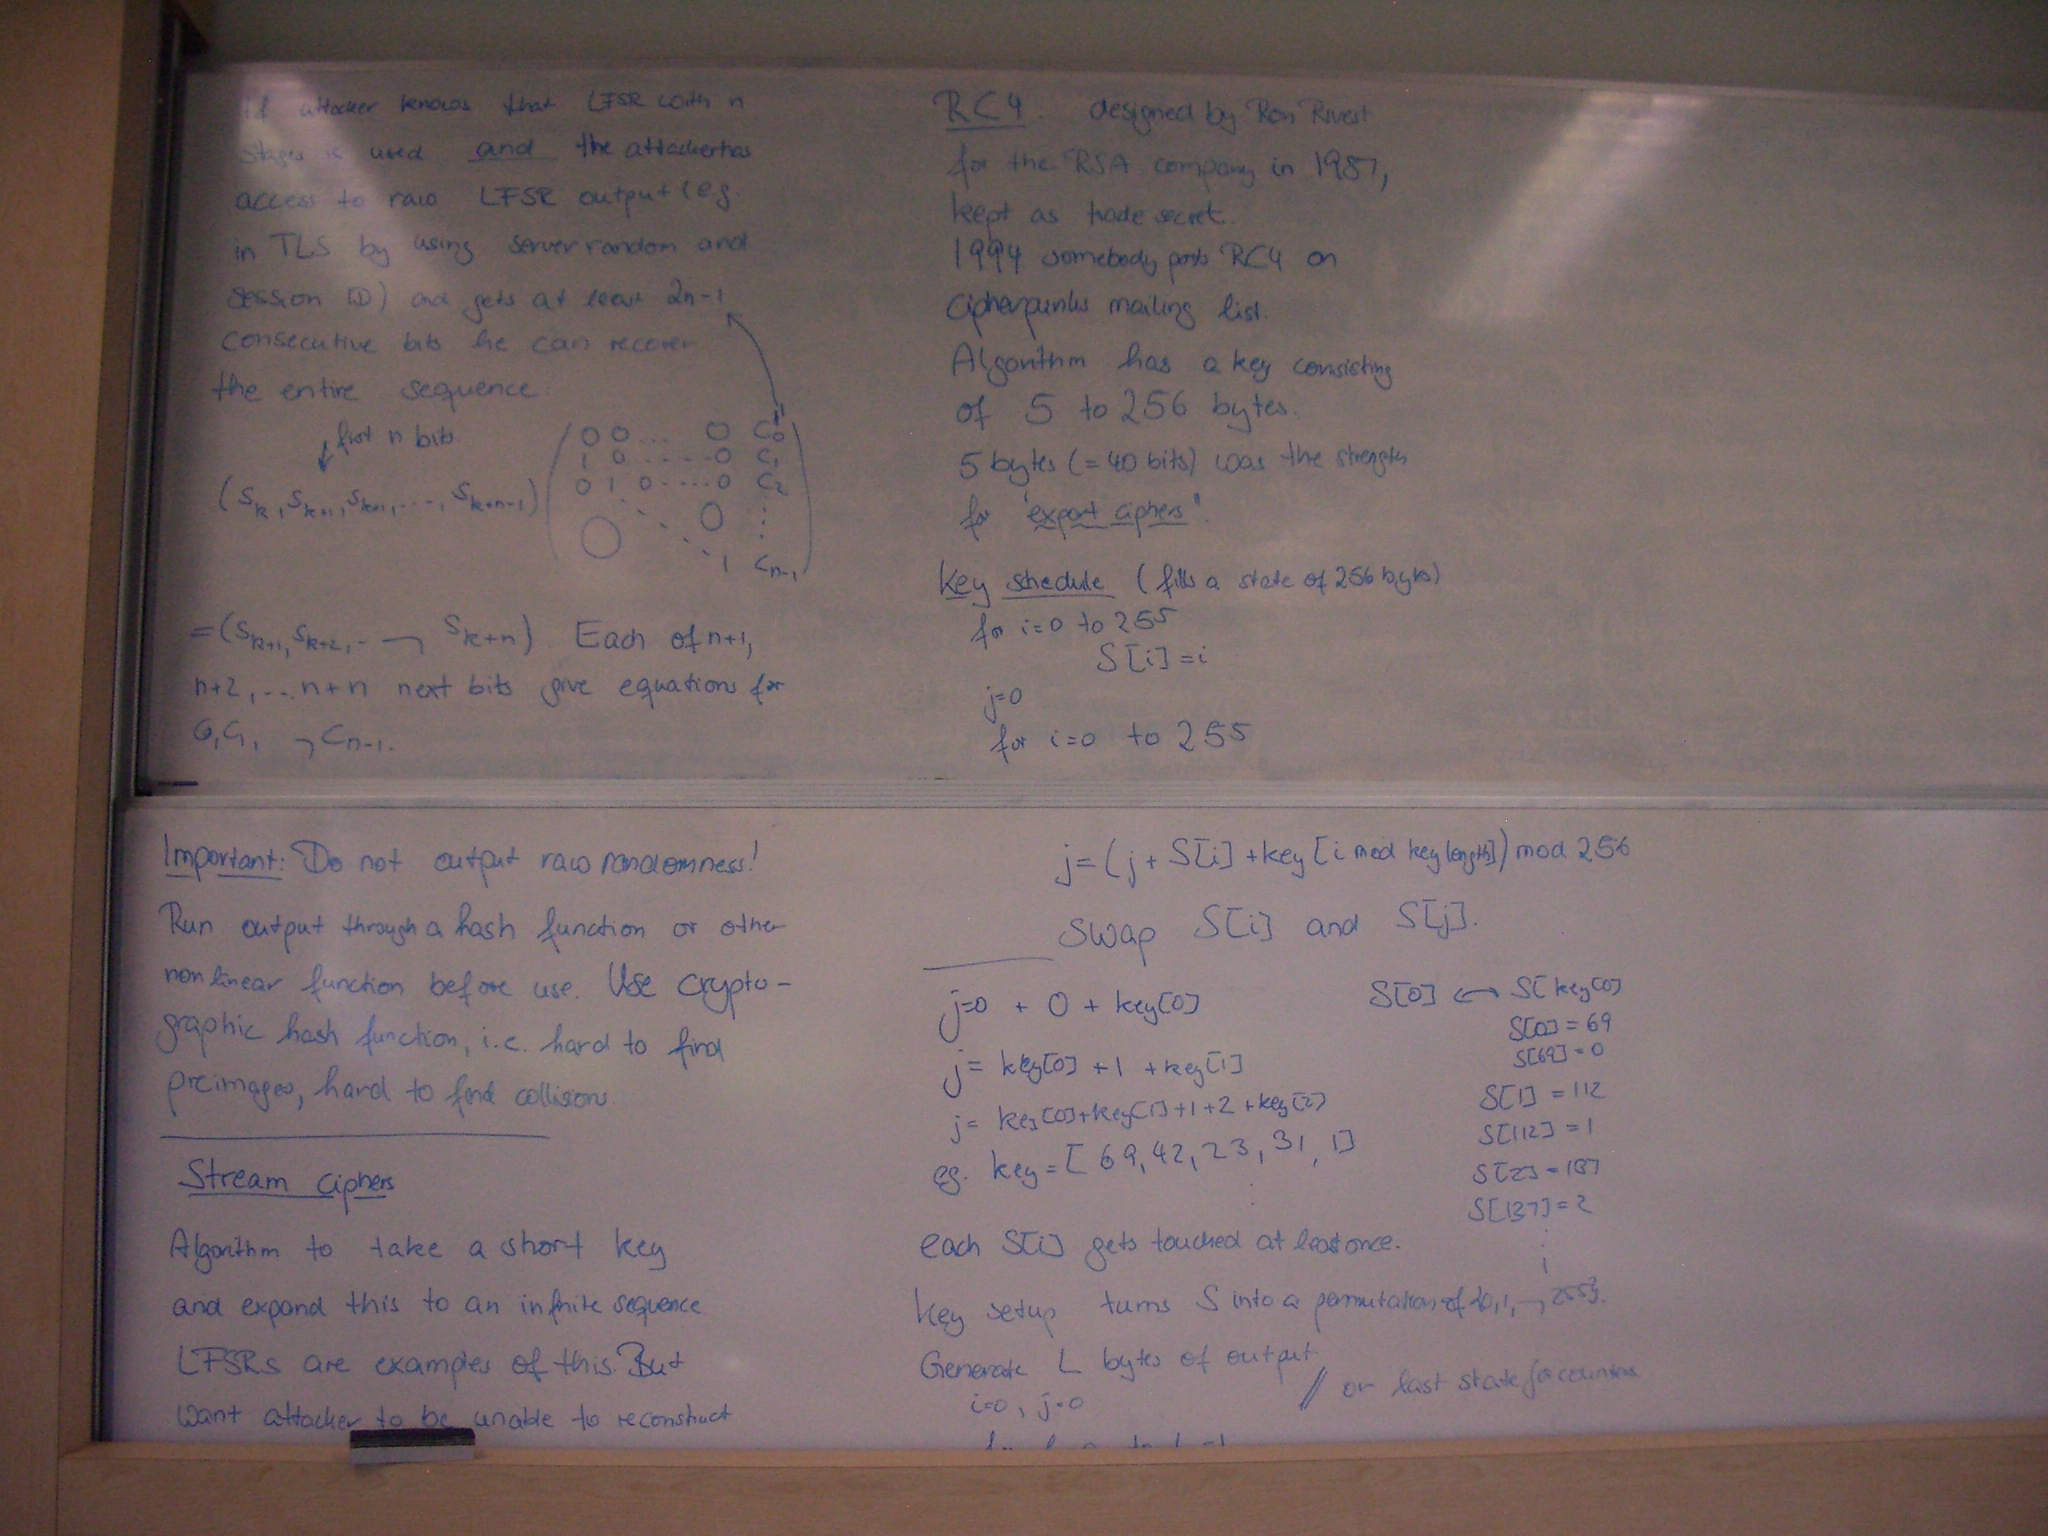 If attacker knows that LFSR with n
stages is used and the attacker has
access to raw LFSR output (e.g.
in TLS by using server random and
session ID) and gets at least 2n-1
consecutive bits he can recover
the entire sequence.
first n bits
(S_k, S_k+1, S_k+1, ..., S_k+n-1) ( 0 0 ... 0 C_0
1 0 ..... 0 C_1
0 1 0 ..... 0 C_2
0 ... 0 ⋮
1 C_n-1 )
= (S_k+1, S_k+2, ..., S_k+n). Each of n+1,
n+2, ... n+n next bits give equations for
C_0, C_1, ..., C_n-1.
Important: Do not output raw randomness!
Run output through a hash function or other
nonlinear function before use. Use crypto-
graphic hash function, i.e. hard to find
preimages, hard to find collisions.
Stream ciphers
Algorithm to take a short key
and expand this to an infinite sequence
LFSRs are examples of this. But
want attacker to be unable to reconstruct
RC4. designed by Ron Rivest
for the RSA company in 1987,
kept as trade secret.
1994 somebody posts RC4 on
cipherpunks mailing list.
Algorithm has a key consisting
of 5 to 256 bytes.
5 bytes (= 40 bits) was the strength
for "export ciphers".
Key shedule (fills a state of 256 bytes)
for i=0 to 255
S[i] = i
j=0
for i=0 to 255
j = (j + S[i] + key[i mod keylength]) mod 256
swap S[i] and S[j].
j=0 + 0 + key[0]
j = key[0] + 1 + key[1]
j = key[0]+key[1]+1+2+key[2]
eg. key = [69, 42, 23, 31, 1]
S[0] ↔ S[key[0]
S[0] = 69
S[69] = 0
S[1] = 112
S[112] = 1
S[2] = 137
S[137] = 2
each S[i] gets touched at least once.
Key setup turns S into a permutation of {0,1,...,255}.
Generate L bytes of output
i=0, j=0 // or last state for